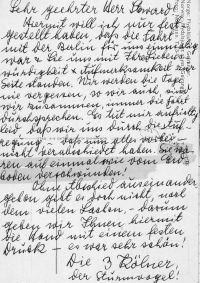 Sehr geehrter Herr Steward!
Hiermit will ich nur fest-
gestellt haben, daß die Fahrt
mit der Berlin für uns einmalig
war & Sie uns mit Ihrer Liebens-
würdigkeit & Aufmerksamkeit zur
Seite standen. Wir werden die Tage
nie vergessen, so wir auch, sind
wir zusammen, immer die Fahrt
durchsprechen. Es tut mir aufrichtig
leid, daß wir uns durch die Auf-
regung, daß nun alles vorbei
nicht verabschiedet haben. Sie wa-
ren auf einmal wie vom Erd-
boden verschwunden!
Ohne Abschied auseinander
gehen gibt es doch nicht, nach
dem vielen Lachen, - darum
geben wir Ihnen hiermit
die Hand mit einem festen
Druck - es war sehr schön!
Die 3 Kölner,
der Sturmvogel!